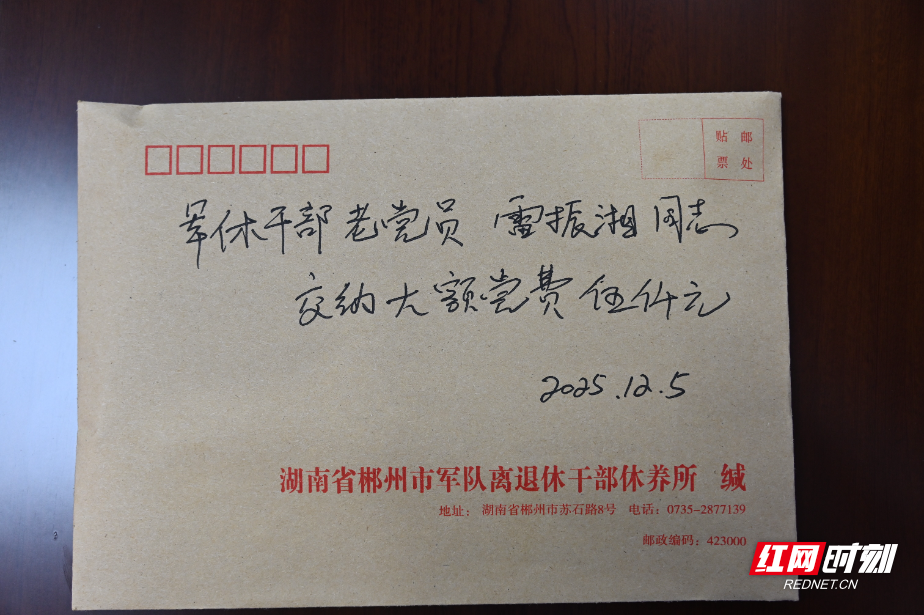 贴 邮
票 处
军休干部老党员 雷振湘同志
交纳大额党费伍仟元
2025.12.5
湖南省郴州市军队离退休干部休养所 缄
地址： 湖南省郴州市苏石路8号 电话：0735-2877139
邮政编码：423000
红网时刻
REDNET.CN